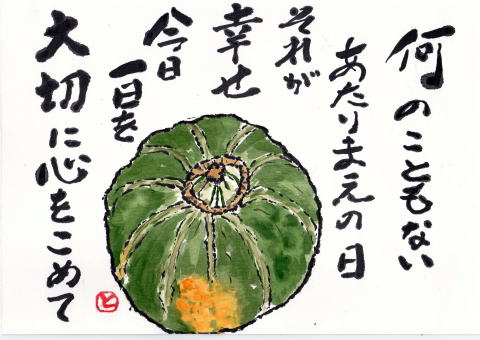 何のこともない
あたりまえの日
それが
幸せ
今日
一日を
大切に心をこめて
と